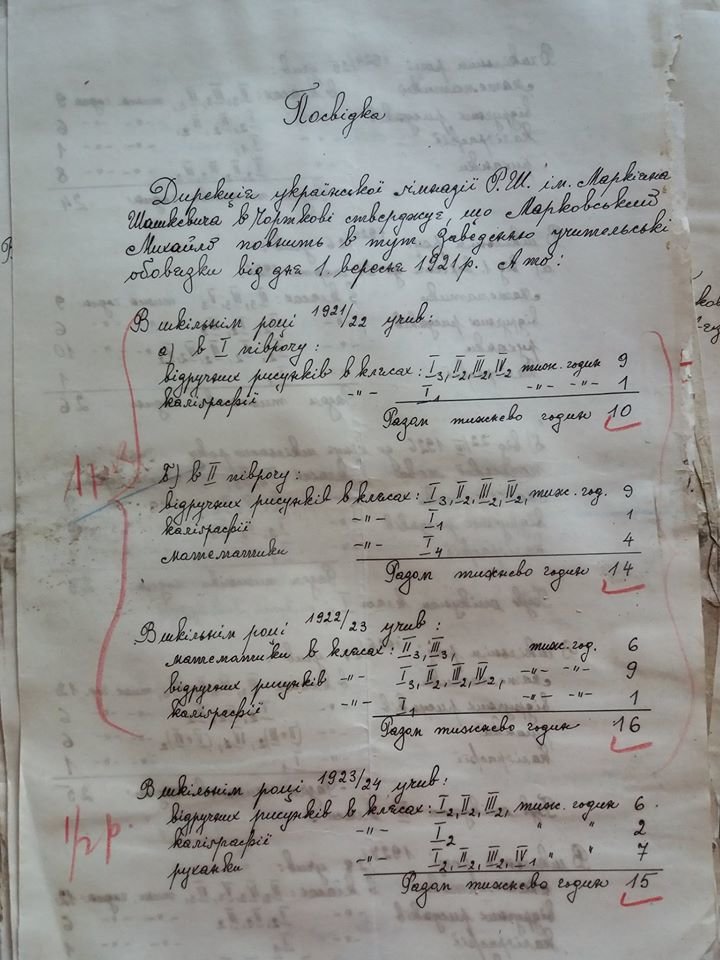 Посвідка
Дирекція української гімназії Р.Ш. ім. Маркіяна
Шашкевича в Чорткові стверджує, що Марковський
Михайло повнить в тут. заведенню учительські
обовязки від дня 1. вересня 1921 р. А то:
В шкільнім році 1921/22 учив:
а) в I півроцу:
відручних рисунків в клясах: I3, II2, III2, IV2 тиж. годин 9
каліграфії -"- I1 -"- -"- 1
Разом тижнево годин 10
1 р.
б) в II півроцу:
відручних рисунків в клясах: I3, II2, III2, IV2, тиж. год. 9
каліграфії -"- I1 1
математики -"- I4 4
Разом тижнево годин 14
В шкільнім році 1922/23 учив:
математики в клясах: II3, III3, тиж. год. 6
відручних рисунків -"- I3, II2, III2, IV2, -"- -"- 9
каліграфії -"- I1 -"- -"- 1
Разом тижнево годин 16
В шкільнім році 1923/24 учив:
відручних рисунків в клясах: I2, II2, III2, тиж. годин 6.
1/2 р.
каліграфії -"- I2 " " 2
руханки -"- I2, II2, III2, IV1 " " 7
Разом тижнево годин 15